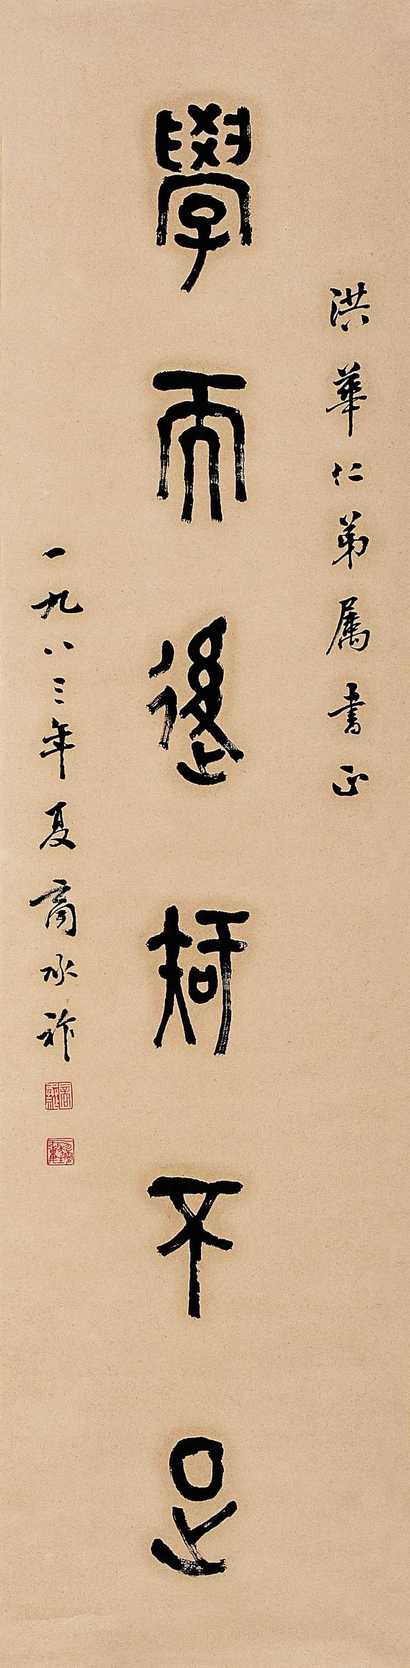 洪華仁弟属書正
學而後知不足
一九八三年夏商承祚